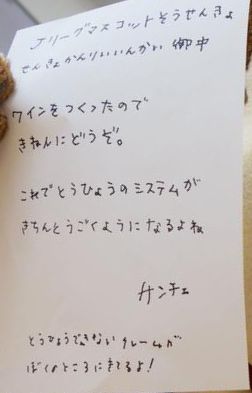 Jリーグマスコットそうせんきょ
せんきょかんりいいんかい 御中
ワインをつくったので
きねんにどうぞ。
これでとうひょうのシステムが
きちんとうごくようになるよね
サンチェ
とうひょうできないクレームが
ぼくのところにきてるよ!